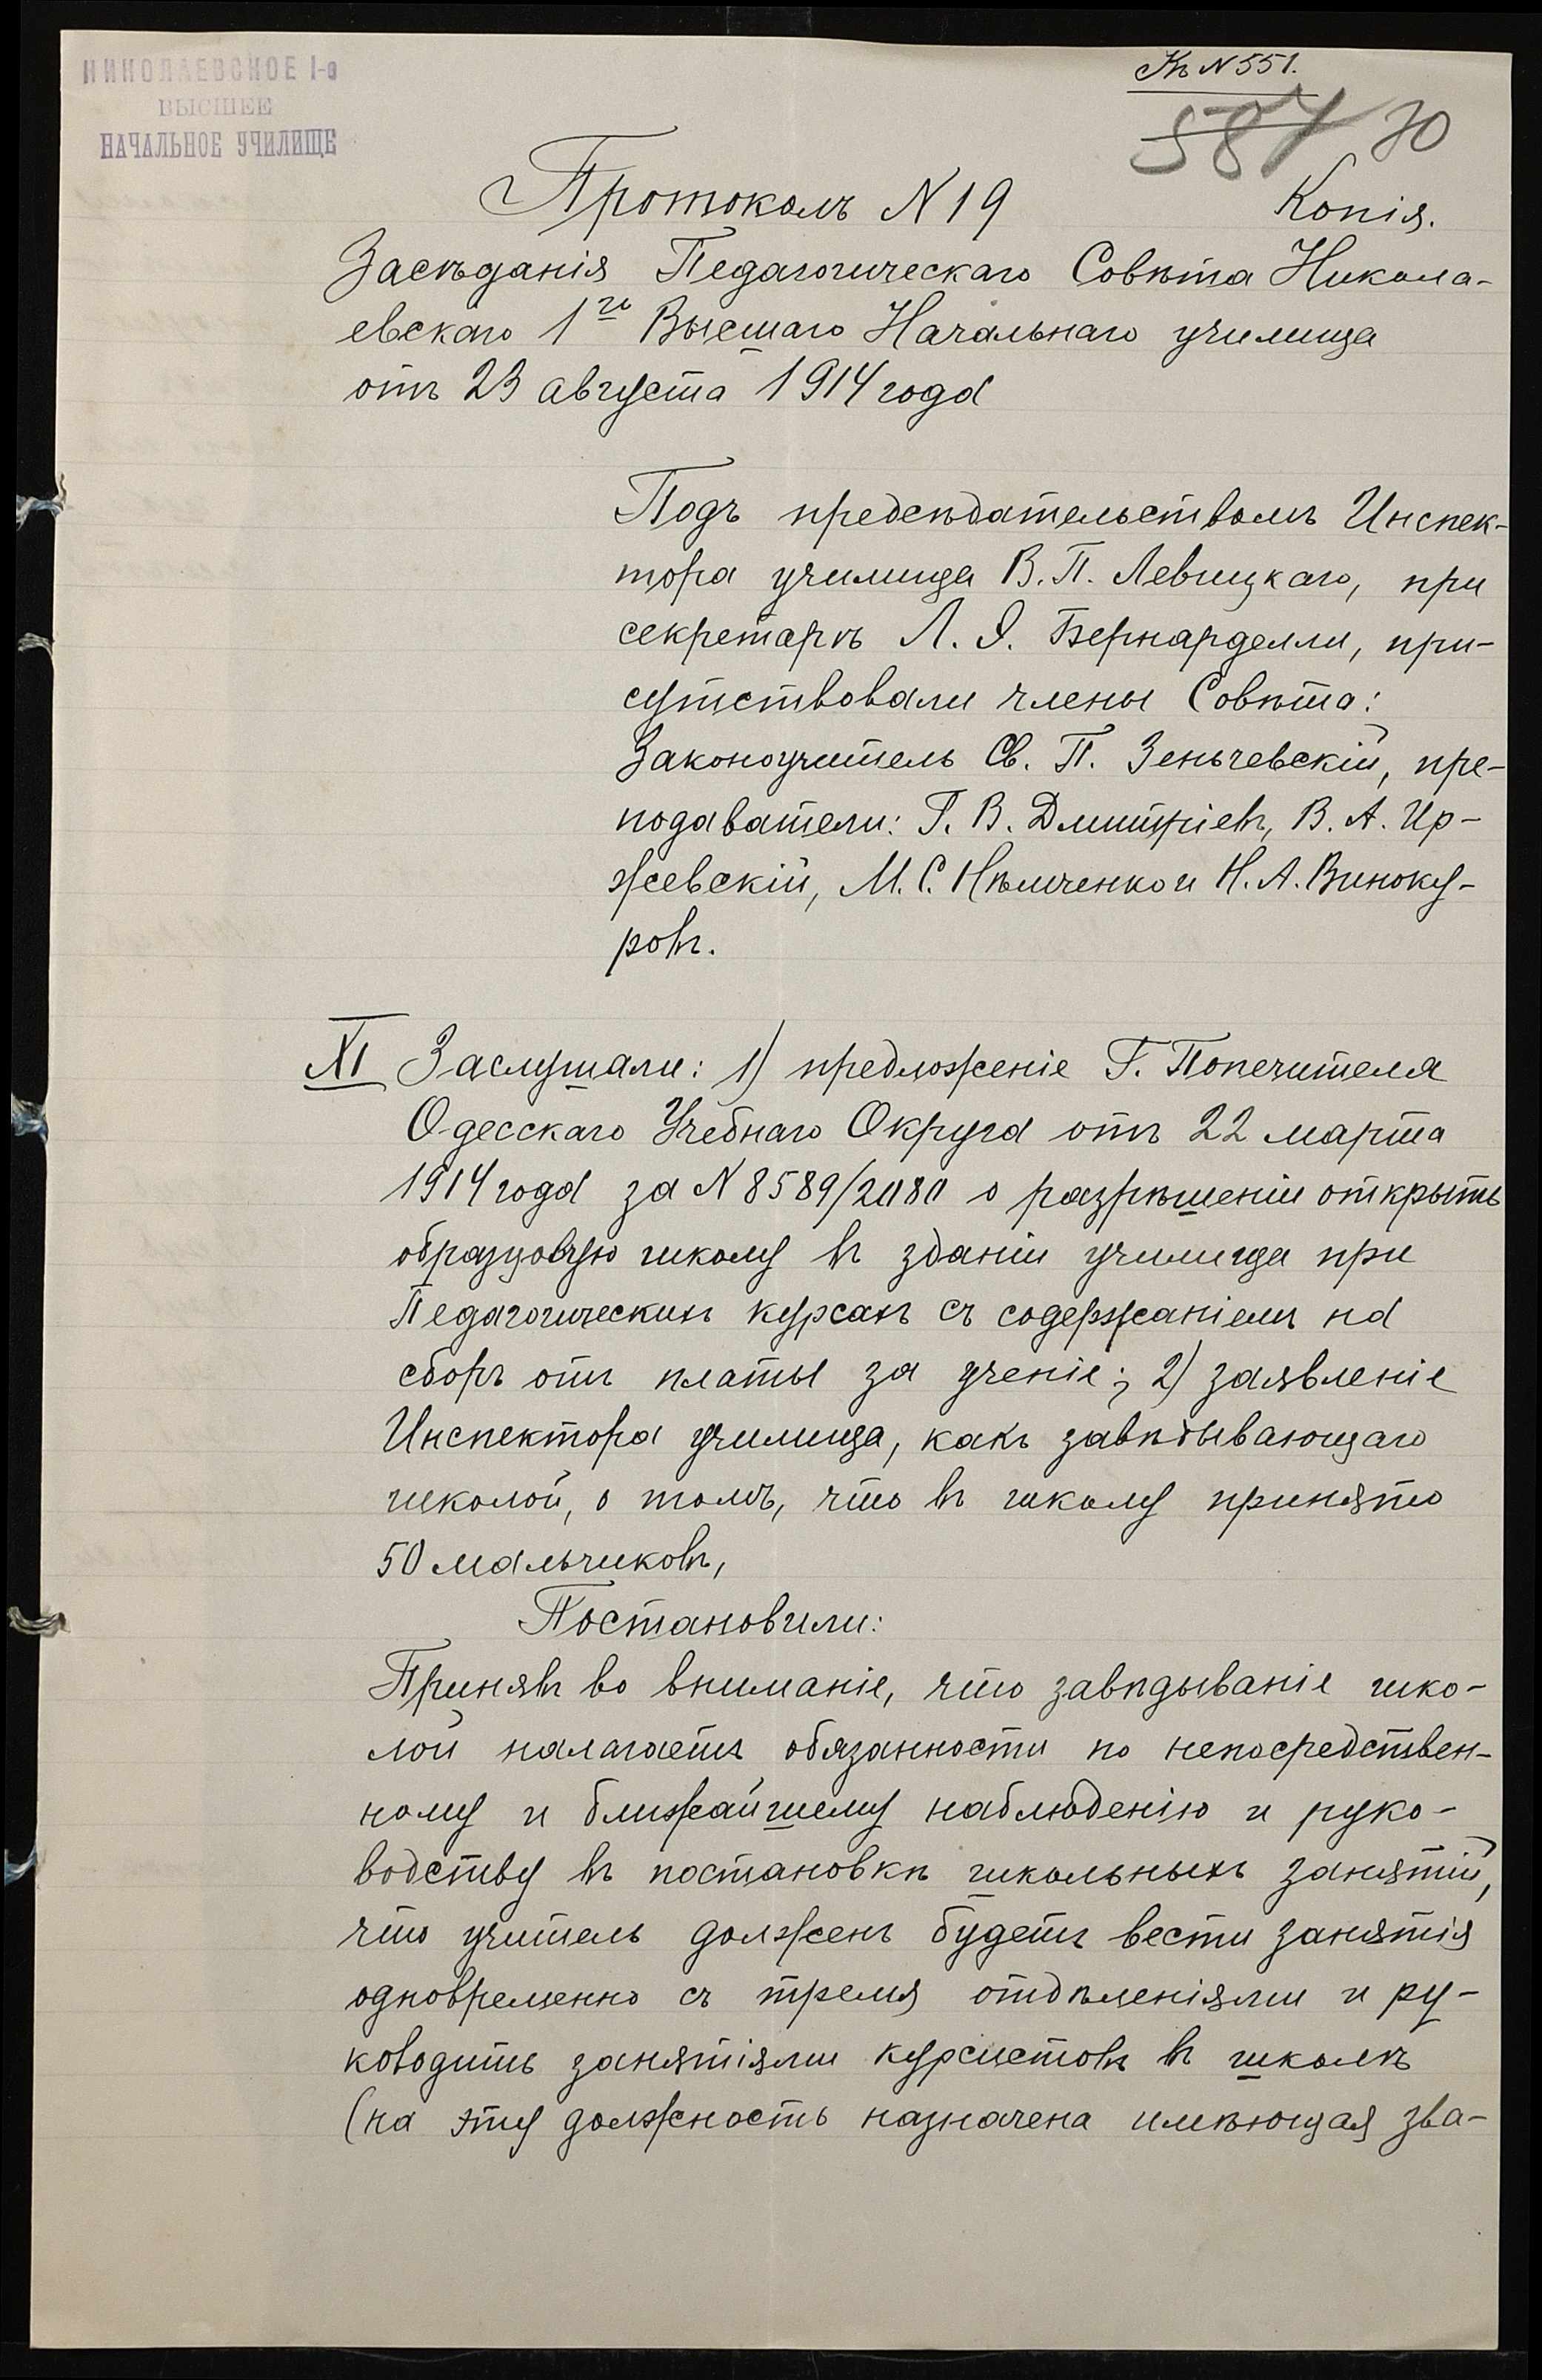 НИКОЛАЕВСКОЕ 1-е
ВЫСШЕЕ
НАЧАЛЬНОЕ УЧИЛИЩЕ
Къ N 551.
587 70
Протоколъ N 19
Копія.
Засѣданія Педагогическаго Совѣта Никола-
евскаго 1го Высшаго Начальнаго училища
отъ 23 августа 1914 года
Подъ предсѣдательствомъ Инспек-
тора училища В. П. Левицкаго, при
секретарѣ Л. Ѳ. Бернарделли, при-
сутствовали члены Совѣта:
Законоучитель Св. П. Зеньчевскій, пре-
подаватели: Г. В. Дмитріевъ, В. А. Ир-
жевскій, М. С. Нѣмченко и Н. А. Виноку-
ровъ.
XI Заслушали: 1) предложеніе Г. Попечителя
Одесскаго Учебнаго Округа отъ 22 марта
1914 года за N 8589/2080 о разрѣшеніи открыть
образцовую школу въ зданіи училища при
Педагогическихъ курсахъ съ содержаніемъ на
сборъ отъ платы за ученіе; 2) заявленіе
Инспектора училища, какъ завѣдывающаго
школой, о томъ, что въ школу принято
50 мальчиковъ,
Постановили:
Принявъ во вниманіе, что завѣдываніе шко-
лой налагаетъ обязанности по непосредствен-
ному и ближайшему наблюденію и руко-
водству въ постановкѣ школьныхъ занятій,
что учитель долженъ будетъ вести занятія
одновременно съ тремя отдѣленіями и ру-
ководить занятіями курсистовъ въ школѣ
(на эту должность назначена имѣющая зва-